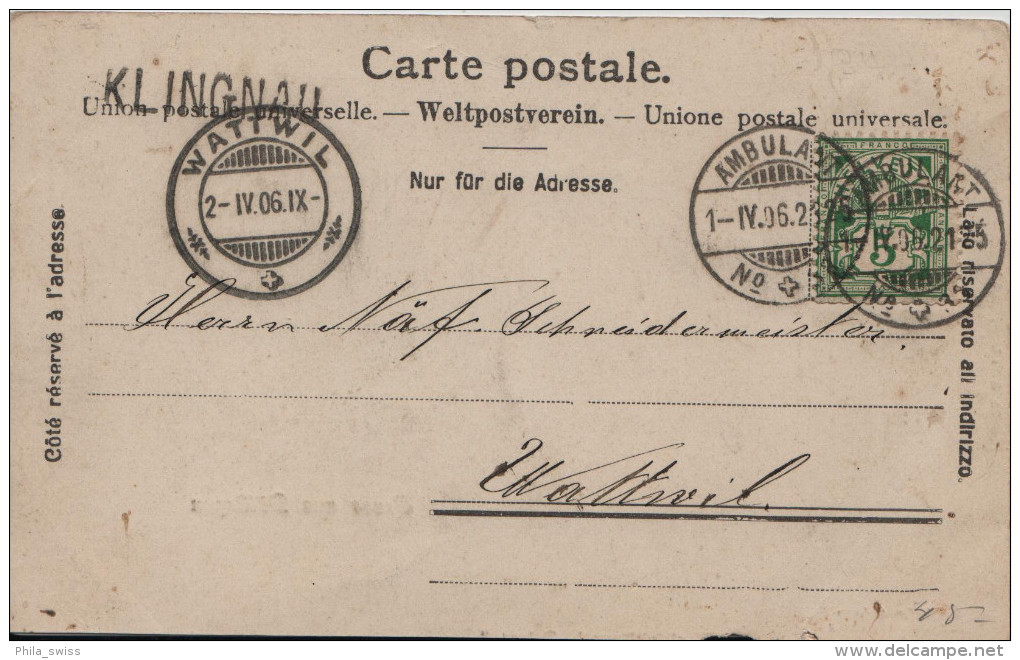 Carte postale.
KLINGNAU
Union postale universelle. — Weltpostverein. — Unione postale universale.
Nur für die Adresse.
WATTWIL
2-IV.06.IX-
AMBULANT
1-IV.06.2
No
FRANCO
5
AMBULANT
No
Côté réservé à l'adresse.
Lato riservato all indirizzo.
Herrn Näf Schneidermeister
Wattwil.
45-
Phila_swiss
delcampe.net